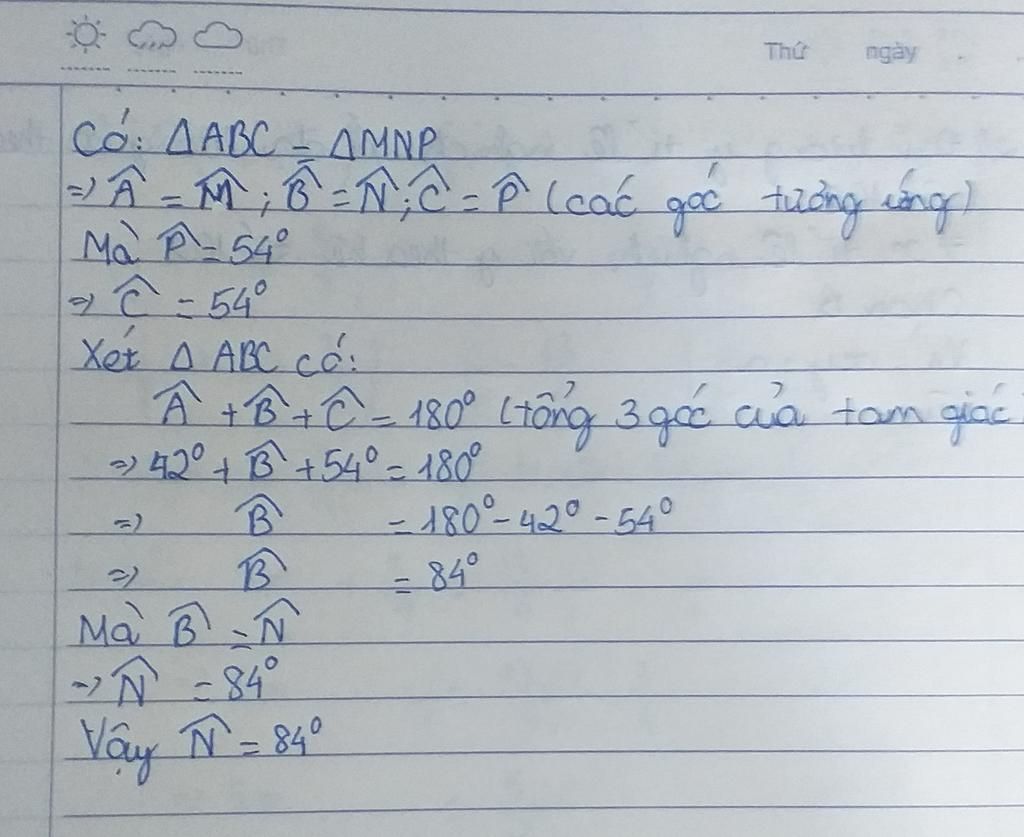 Thứ ngày
Có: ΔABC = ΔMNP
=> Â = M̂ ; B̂ = N̂ ; Ĉ = P̂ (các góc tưởng ứng)
Mà P̂ = 54°
=> Ĉ = 54°
Xét Δ ABC có:
Â + B̂ + Ĉ = 180° (tổng 3 góc của tam giác
=> 42° + B̂ + 54° = 180°
=> B̂ = 180° - 42° - 54°
=> B̂ = 84°
Mà B̂ = N̂
=> N̂ = 84°
Vậy N̂ = 84°